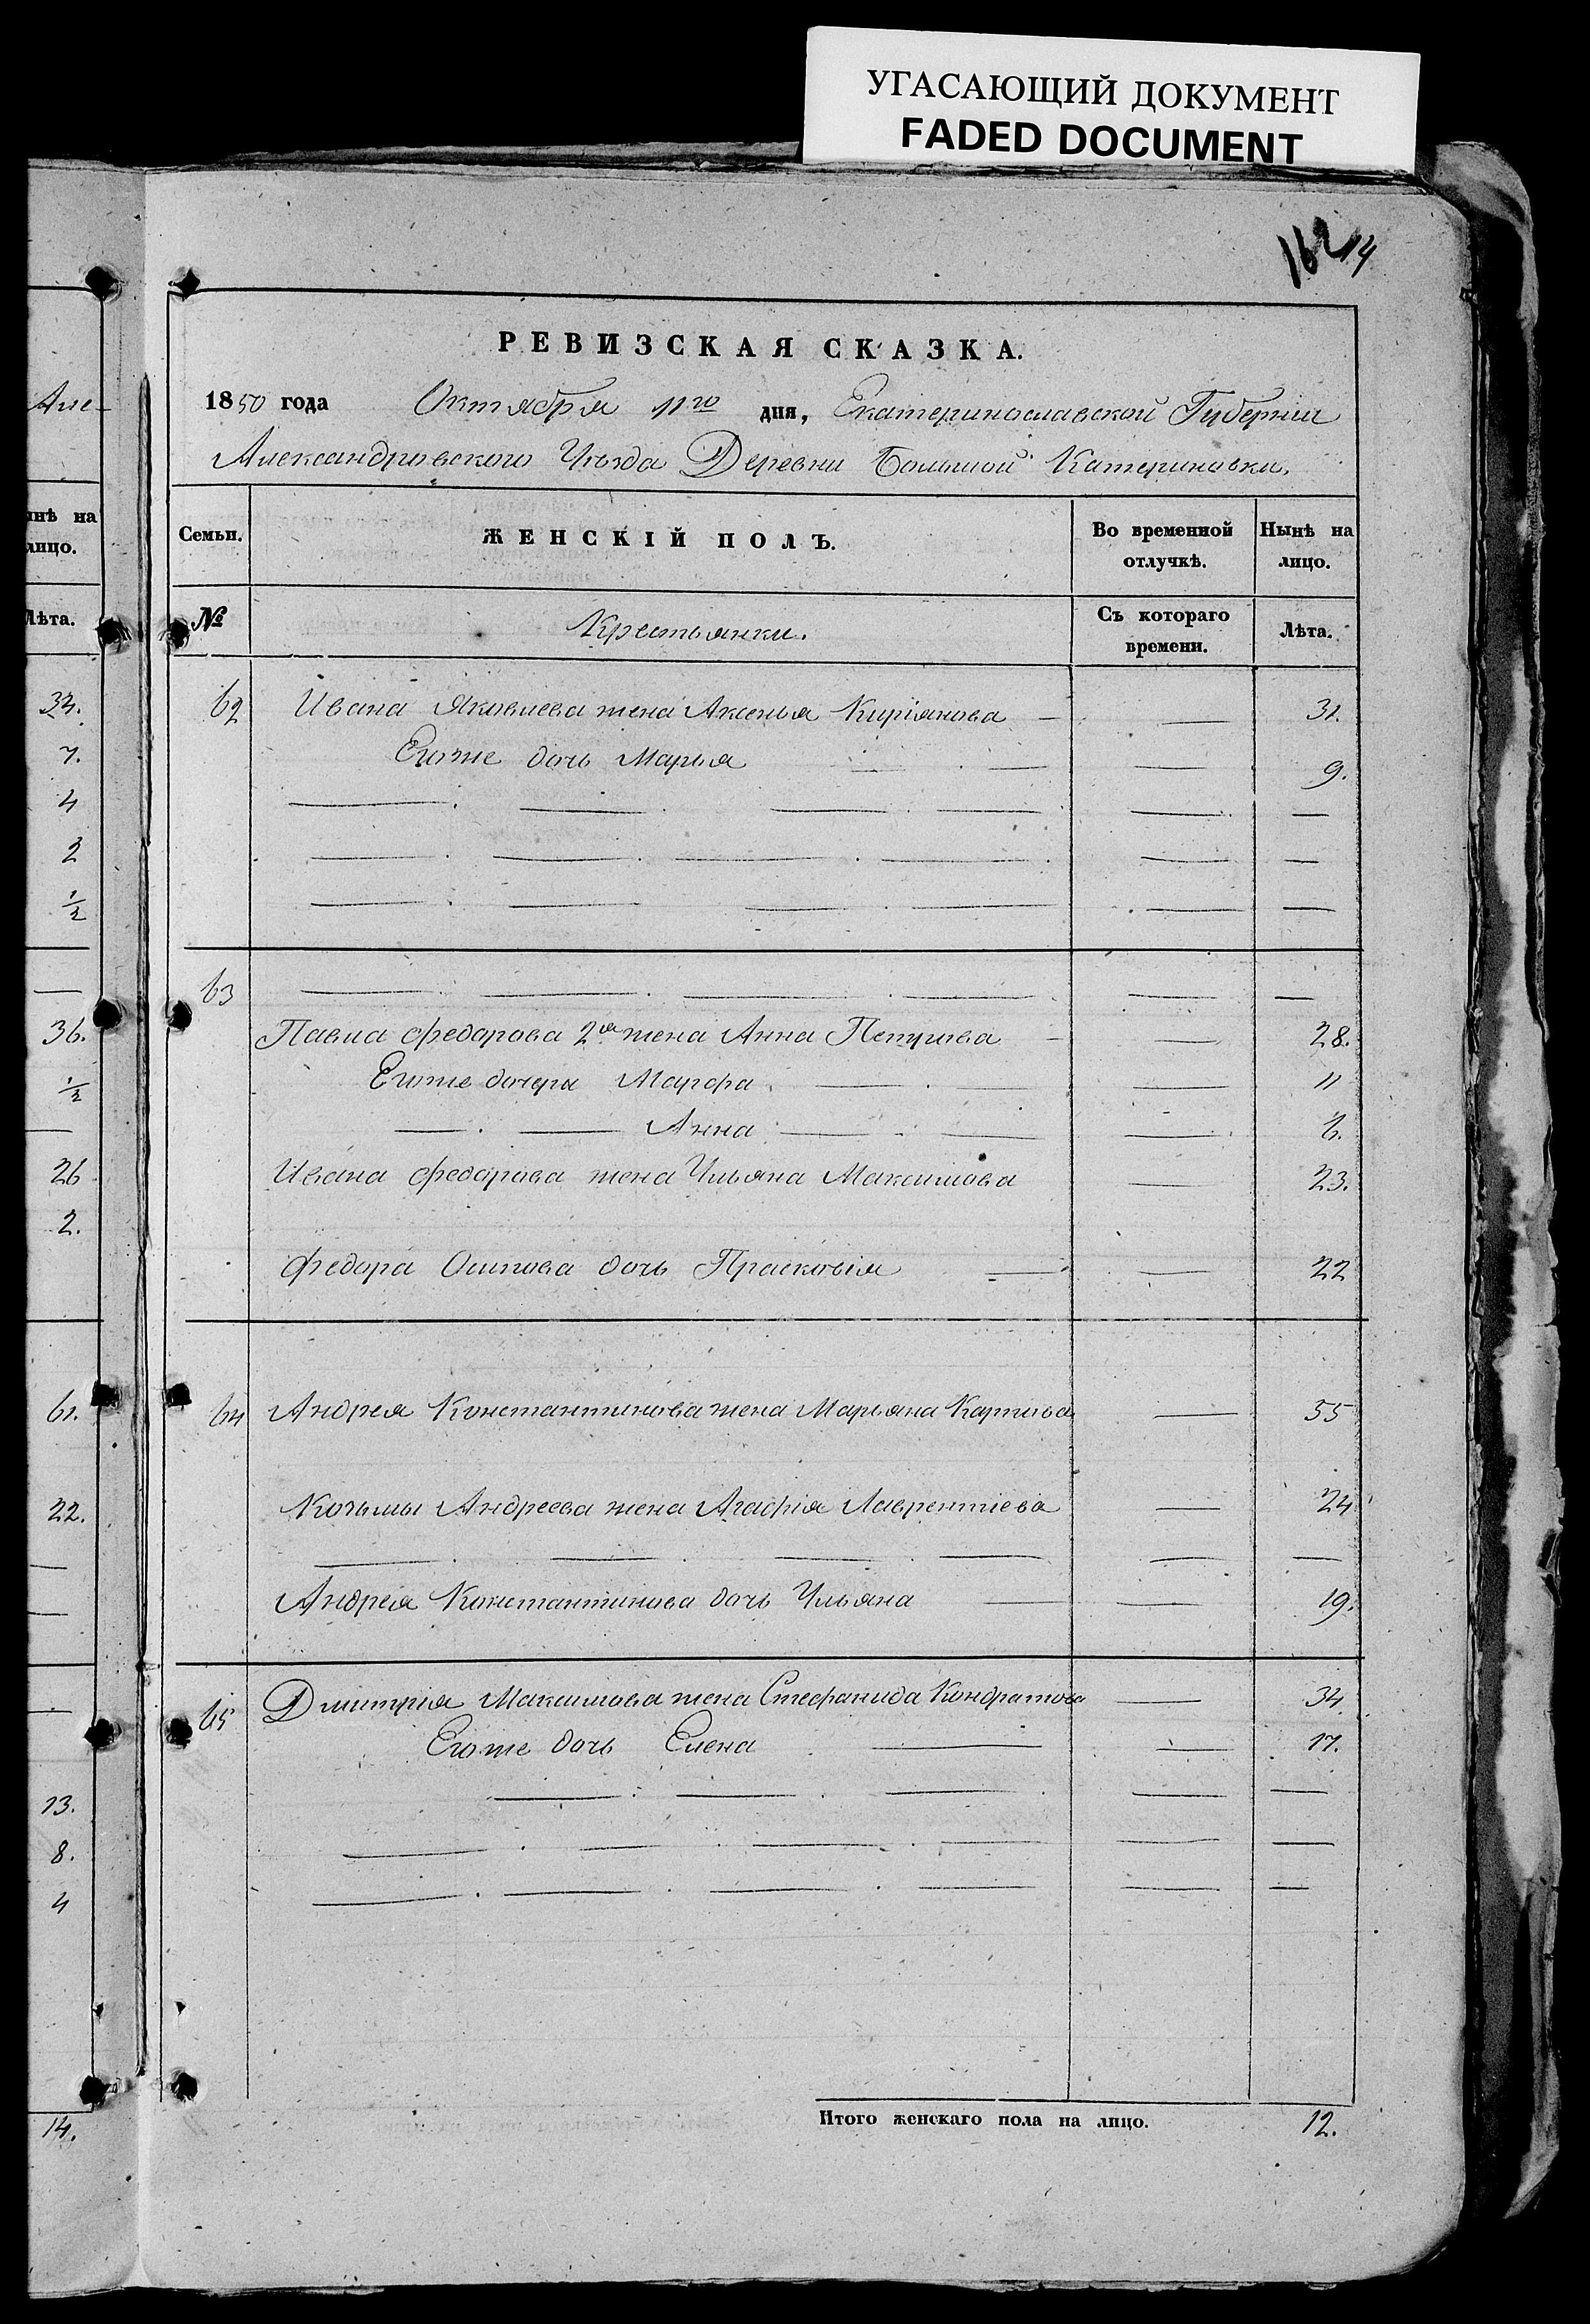 УГАСАЮЩИЙ ДОКУМЕНТ
FADED DOCUMENT
162 14
РЕВИЗСКАЯ СКАЗКА.
1850 года Октября 11го дня, Екатеринославской Губернии
Александровского Уезда Деревни Большой Катериновки.
Семьи. ЖЕНСКІЙ ПОЛЪ. Во временной отлучкѣ. Нынѣ на лицо.
№ Крестьянки. Съ котораго времени. Лѣта.
62 Ивана Яковлева жена Аксенья Киріянова — — 31.
Егоже дочь Марья — — — 9.
63
Павла Федорова 2я жена Анна Петрова — — 28.
Егоже дочери Марфа — — — 11
— — Анна — — — 6.
Ивана Федорова жена Ульяна Максимова — 23.
Федора Осипова дочь Прасковія — — 22
64 Андрея Константинова жена Марьяна Карпова — 55
Козьмы Андреева жена Агафія Лаврентіева — 24
Андрея Константинова дочь Ульяна — — 19.
65 Дмитрія Максимова жена Стефанида Кондратова — 34.
Егоже дочь Елена — — 17.
Итого женскаго пола на лицо. 12.
Але-
ынѣ на
лицо.
Лѣта.
34.
7.
4
2
1/2
36.
1/2
26
2.
61.
22.
13.
8.
4
14.